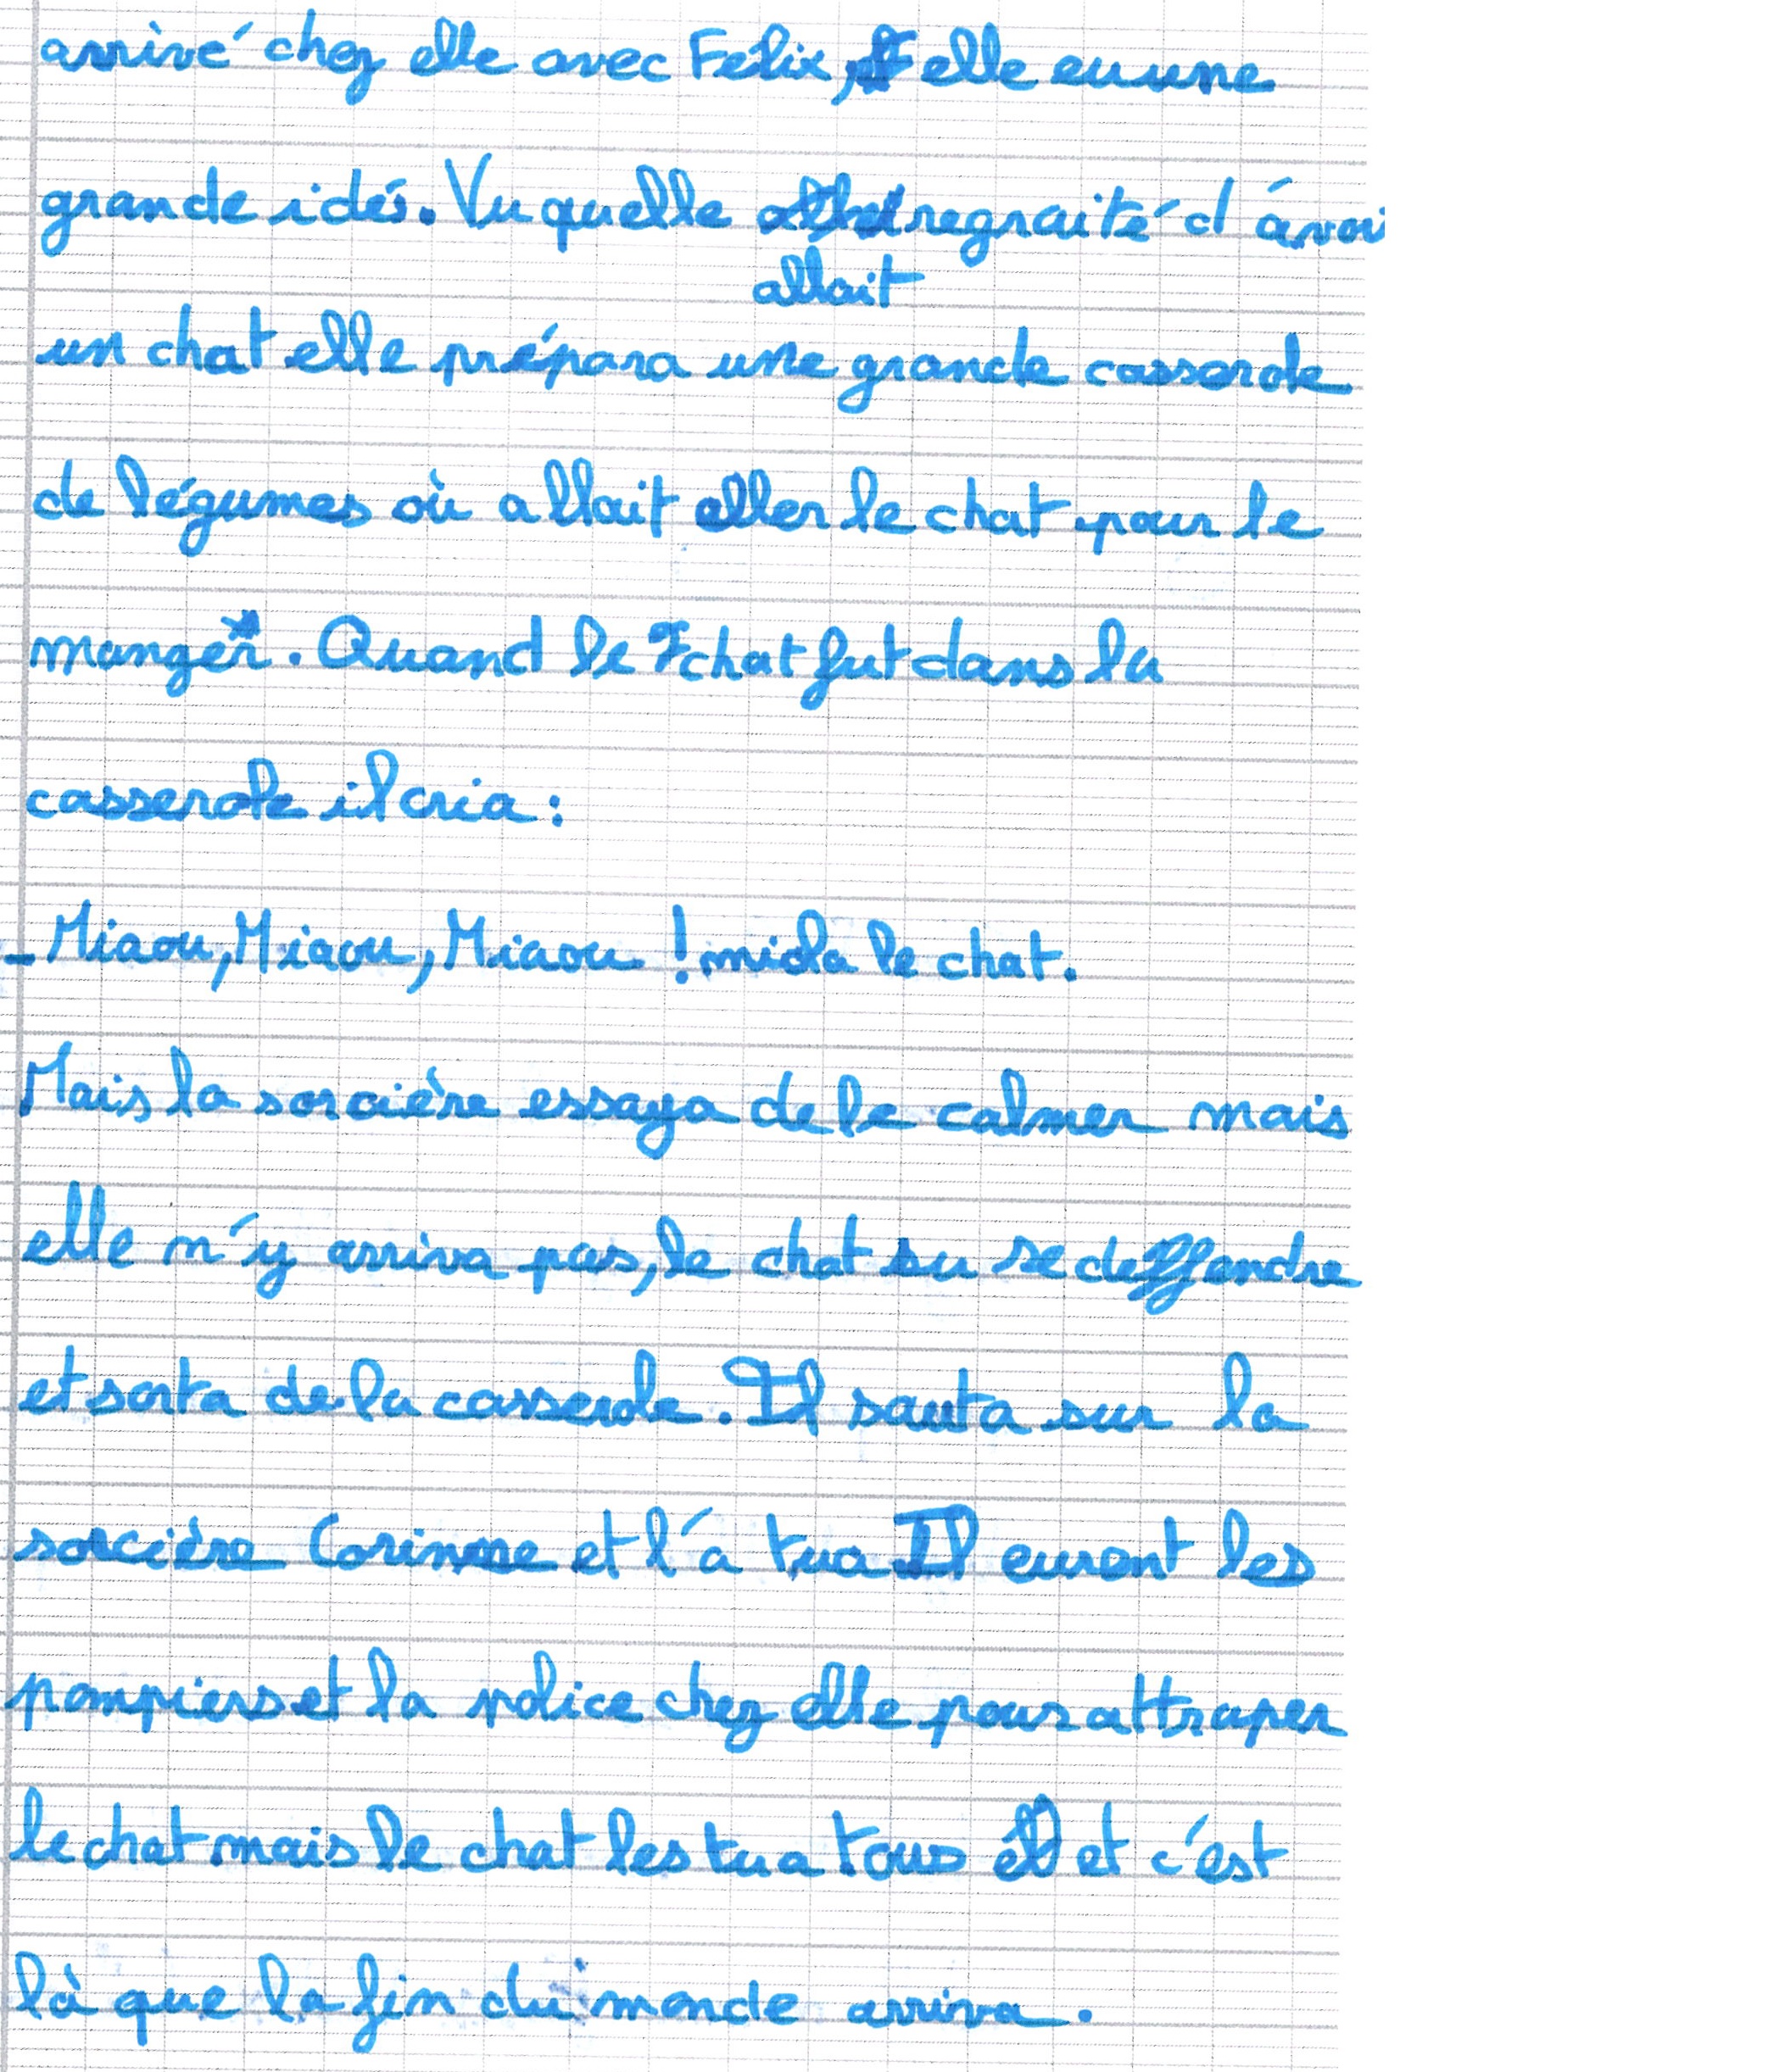 arrivé chez elle avec Félix, elle eu une
grande idés. Vu quelle regraité d'avoi
allait
un chat elle prépara une grande casserole
de légumes où allait aller le chat pour le
manger. Quand le chat fut dans la
casserole il cria :
_ Miaou, Miaou, Miaou ! miola le chat.
Mais la sorcière essaya de le calmer mais
elle n'y arriva pas, le chat su se deffendre
et sorta de la casserole. Il sauta sur la
sorcière Corinne et l'a tua Il eurent les
pompiers et la police chez elle pour attraper
le chat mais le chat les tua tous et c'est
là que la fin du monde arriva.